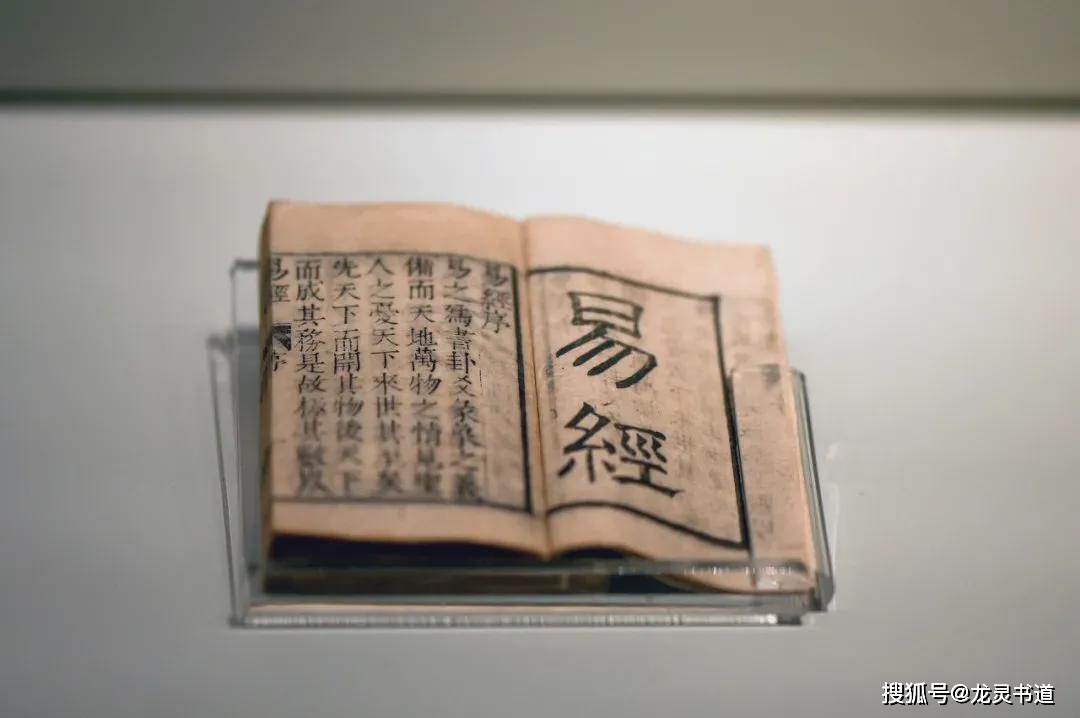 易經
易經序
易之爲書卦爻彖象之義
備而天地萬物之情見聖
人之憂天下來世其至矣
先天下而開其物後天下
而成其務是故極其數以
易經 序
搜狐号@龙灵书道